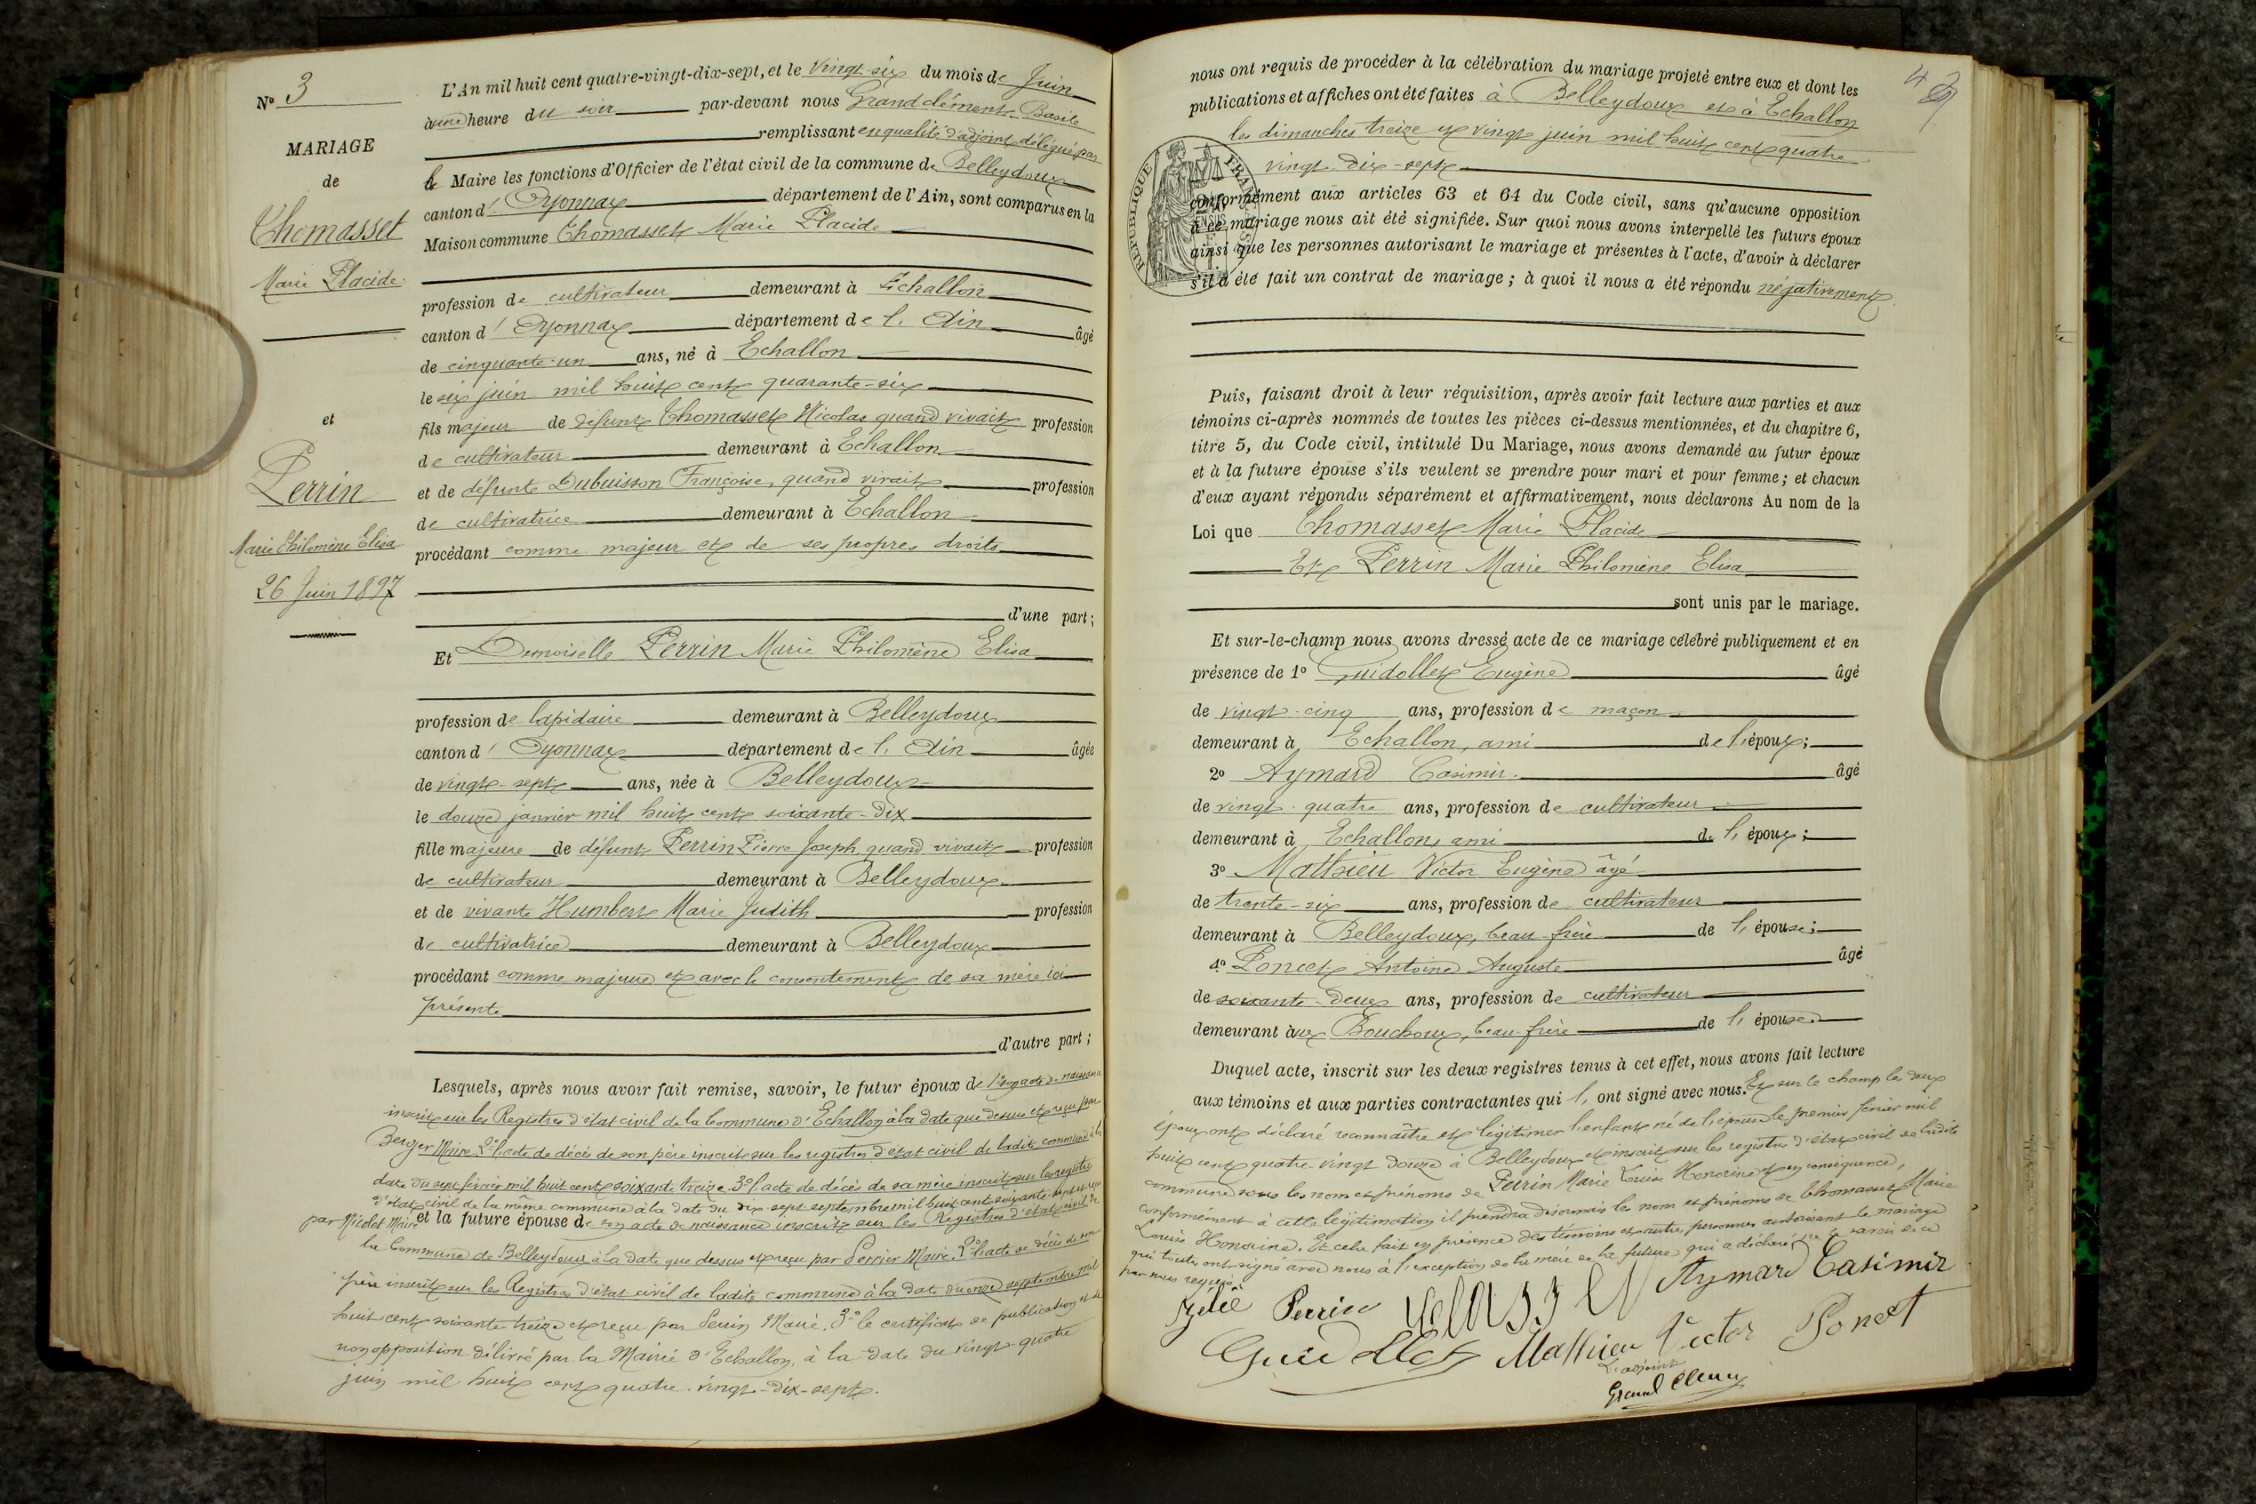 N° 3
MARIAGE
de
Thomasset
Marie Placide
et
Perrin
Marie Philomène Elisa
26 Juin 1897
L'An mil huit cent quatre-vingt-dix-sept, et le vingt-six du mois de Juin
à une heure du soir par-devant nous Grandclément Basile
remplissant en qualité d'adjoint délégué par
le Maire les fonctions d'Officier de l'état civil de la commune de Belleydoux
canton d'Oyonnax département de l'Ain, sont comparus en la
Maison commune Thomasset Marie Placide
profession de cultivateur demeurant à Echallon
canton d'Oyonnax département de l'Ain âgé
de cinquante-un ans, né à Echallon
le six juin mil huit cent quarante-six
fils majeur de défunt Thomasset Nicolas quand vivait profession
de cultivateur demeurant à Echallon
et de défunte Dubuisson Françoise, quand vivait profession
de cultivatrice demeurant à Echallon
procédant comme majeur et de ses propres droits
d'une part;
Et Demoiselle Perrin Marie Philomène Elisa
profession de lapidaire demeurant à Belleydoux
canton d'Oyonnax département de l'Ain âgée
de vingt-sept ans, née à Belleydoux
le douze janvier mil huit cent soixante-dix
fille majeure de défunt Perrin Pierre Joseph quand vivait profession
de cultivateur demeurant à Belleydoux
et de vivante Humbert Marie Judith profession
de cultivatrice demeurant à Belleydoux
procédant comme majeure et avec le consentement de sa mère ici
présente
d'autre part;
Lesquels, après nous avoir fait remise, savoir, le futur époux de 1° son acte de naissance
inscrit sur les Registres d'état civil de la Commune d'Echallon à la date que dessus et reçu par
Berger Maire 2° l'acte de décès de son père inscrit sur les registres d'état civil de ladite commune à la
date du sept février mil huit cent soixante treize 3° l'acte de décès de sa mère inscrit sur les registres
d'état civil de la même commune à la date du dix-sept septembre mil huit cent soixante-sept et reçu
par Nicolet Maire et la future épouse de son acte de naissance inscrit sur les Registres d'état civil de
la Commune de Belleydoux à la date que dessus et reçu par Perrier Maire. 2° l'acte de décès de son
père inscrit sur les Registres d'état civil de ladite commune à la date du onze septembre mil
huit cent soixante treize et reçu par Perrin Maire. 3° le certificat de publication et de
non opposition délivré par la Mairie d'Echallon, à la date du vingt-quatre
juin mil huit cent quatre-vingt-dix-sept.
nous ont requis de procéder à la célébration du mariage projeté entre eux et dont les
publications et affiches ont été faites à Belleydoux et à Echallon
les dimanches treize et vingt juin mil huit cent quatre
vingt-dix-sept
RÉPUBLIQUE FRANÇAISE
conformément aux articles 63 et 64 du Code civil, sans qu'aucune opposition
à ce mariage nous ait été signifiée. Sur quoi nous avons interpellé les futurs époux
ainsi que les personnes autorisant le mariage et présentes à l'acte, d'avoir à déclarer
s'il a été fait un contrat de mariage; à quoi il nous a été répondu négativement
Puis, faisant droit à leur réquisition, après avoir fait lecture aux parties et aux
témoins ci-après nommés de toutes les pièces ci-dessus mentionnées, et du chapitre 6,
titre 5, du Code civil, intitulé Du Mariage, nous avons demandé au futur époux
et à la future épouse s'ils veulent se prendre pour mari et pour femme; et chacun
d'eux ayant répondu séparément et affirmativement, nous déclarons Au nom de la
Loi que Thomasset Marie Placide
Et Perrin Marie Philomène Elisa
sont unis par le mariage.
Et sur-le-champ nous avons dressé acte de ce mariage célébré publiquement et en
présence de 1° Guidollet Eugène âgé
de vingt-cinq ans, profession de maçon
demeurant à Echallon, ami de l'époux;
2° Aymard Casimir. âgé
de vingt-quatre ans, profession de cultivateur
demeurant à Echallon, ami de l'époux;
3° Mathieu Victor Eugène âgé
de trente-six ans, profession de cultivateur
demeurant à Belleydoux, beau-frère de l'épouse;
4° Poncet Antoine Auguste âgé
de soixante-deux ans, profession de cultivateur
demeurant aux Bouchoux, beau-frère de l'épouse.
Duquel acte, inscrit sur les deux registres tenus à cet effet, nous avons fait lecture
aux témoins et aux parties contractantes qui l'ont signé avec nous. Et sur le champ les deux
époux ont déclaré reconnaître et légitimer l'enfant né de l'épouse le premier février mil
huit cent quatre-vingt douze à Belleydoux et inscrit sur les registres d'état civil de ladite
commune sous les nom et prénoms de Perrin Marie Louise Honorine et en conséquence,
conformément à cette légitimation il prendra désormais les nom et prénoms de Thomasset Marie
Louise Honorine. Et cela fait en présence des témoins et autres personnes autorisant le mariage
qui toutes ont signé avec nous à l'exception de la mère de la future qui a déclaré ne le savoir de ce
par nous requise.
Perrin Aymard Casimir
Guidollet Mathieu Victor Poncet
L'adjoint
Grand Clément